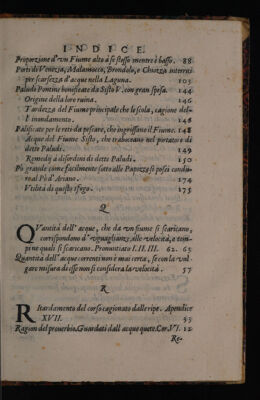 INDICE.
Proporzione d'vn Fiume alto à se stesso mentre è basso. 88
Porti di Venezia, Malamocco, Brondolo, e Chiozza interriti
per scarsezza d'acque nella Laguna. 105
Paludi Pontine bonificate da Sisto V. con gran spesa. 144
Origine della loro ruina. 146
Tardezza del Fiume principale che le scola, cagione del-
l' inondamento. 146
Palificate per le reti da pescare, che ingrossano il Fiume. 148
Acque del Fiume Sisto, che traboccano nel portatore di
dette Paludi. 149
Remedij à disordini di dette Paludi. 150
Pò grande come facilmente sotto alle Papozze si posei condu-
r nel Pò d'Ariano. 174
Vtilità di questo sfogo. 175
Q
QVantità dell' acque, che da vn fiume si scaricano,
corrispondono d'vguaglianze alle velocità, e tem-
pi ne quali si scaricano. Pronuntiato I. II. III. 62. 63
Quantità dell' acque correnti non è mai certa, se con la vol-
gare misura de esse non si considera la velocità. 57
R
RItardamento del corso cagionato dalle ripe. Apendice
XVII. 53
Ragion del prouerbio, Guardati dall'acque quete. Cor. VI. 12
Re-